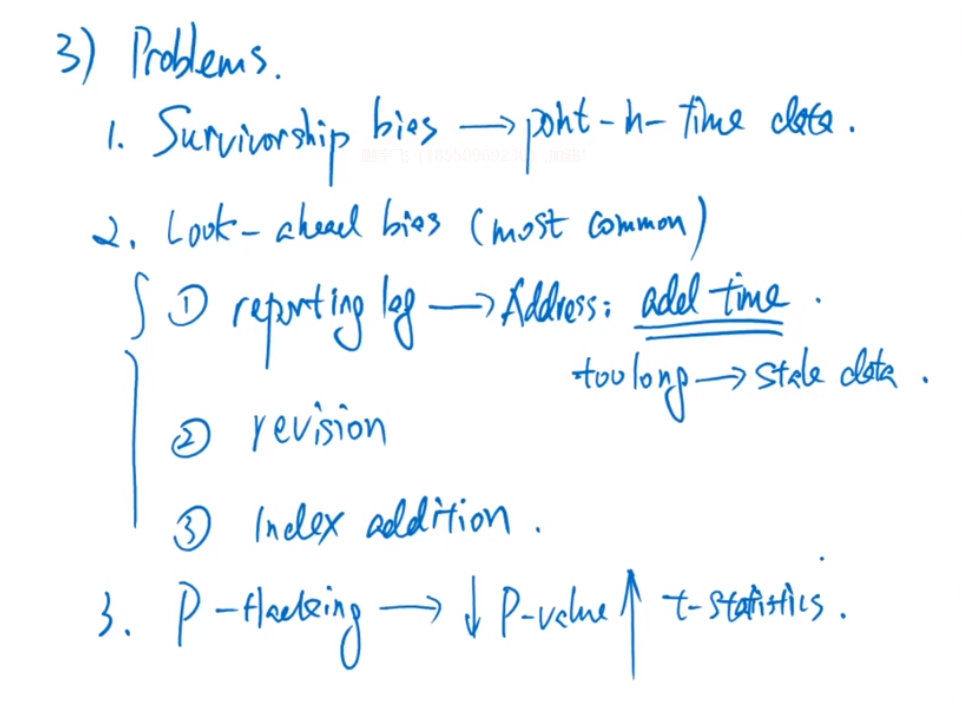 3) Problems.
1. Survivorship bias → point-in-time data.
2. Look-ahead bias (most common)
① reporting lag → Address: add time.
too long → stale data.
② revision
③ Index addition.
3. P-Hacking → ↓ P-value ↑ t-statistics.